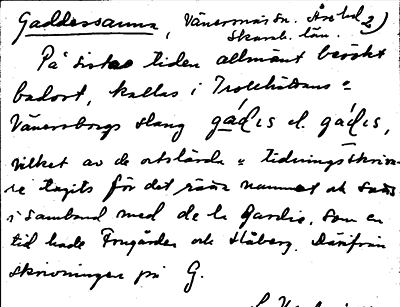 Gaddesanna, Vänersnäs sn. Åse hd 2)
Skarab. län.
På sista tiden allmänt besökt
badort, kallas i Trollhättans =
Vänersborgs slang gádis el. gádis,
vilket av de ortslärda = tidningsskriva-
re tagits för det rätta namnet och satts
i samband med de la Gardie, som en
tid hade Frugården och Håberg. Därifrån
skrivningen på G.